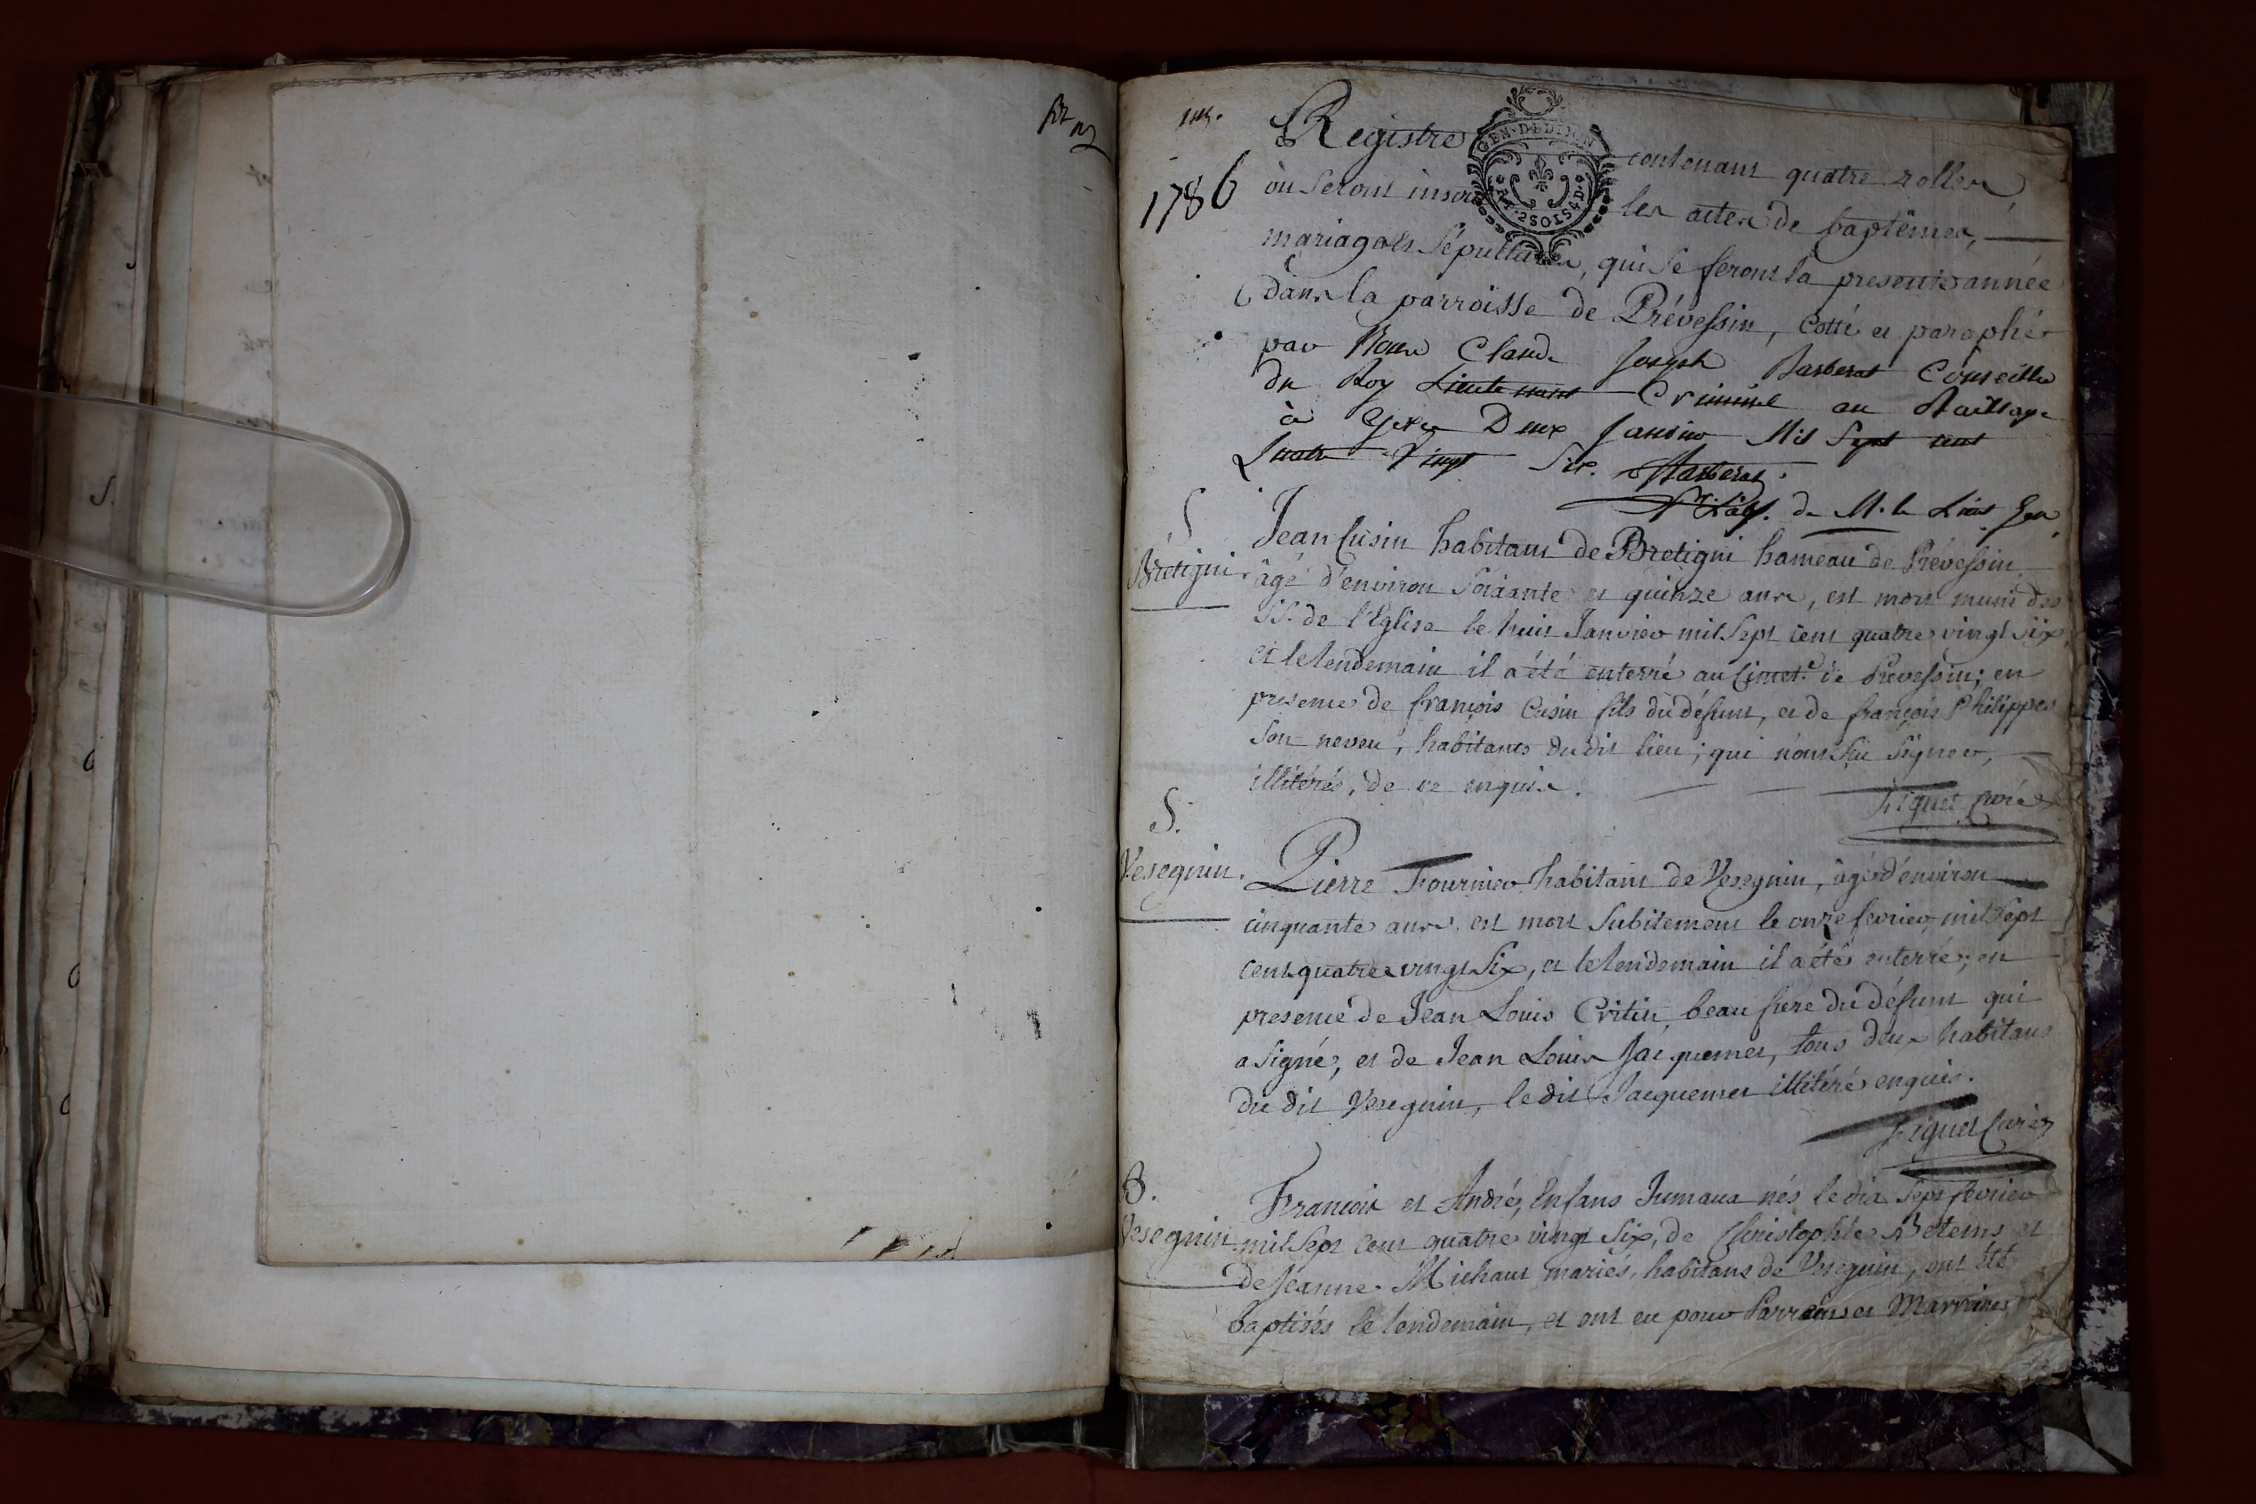 1786
Registre contenant quatre rolles,
GEN. DE DIJON
où seront inscr les actes de baptêmes,
2 SOLS 4 D.
mariages sépultures, qui se feront la presente année
dans la parroisse de Prévessin, cotté et paraphé
par Nous Claude Joseph Barberat Conseiller
du Roy Lieutenant Criminel au Bailliage
à Gex ce Deux Janvier Mil Sept cent
Quatre Vingt Six. Barberat
de M. le Lieut Gen
S
Bretigni.
Jean Cusin habitant de Bretigni hameau de Prévessin
âgé d'environ soixante et quinze ans, est mort muni des
SS. de l'Eglise le huit Janvier mil sept cent quatre vingt six
et le lendemain il a été enterré au Cimet.e de Prevessin; en
presence de françois Cusin fils du défunt, et de françois Philippes
son neveu, habitants du dit lieu; qui n'ont sçu signer,
illitérés, de ce enquis.
Figuet Curé
S.
Vesegnin.
Pierre Fournier habitant de Vesegnin, âgé d'environ
cinquante ans, est mort subitement le onze fevrier mil sept
cent quatre vingt six, et le lendemain il a été enterré; en
presence de Jean Louis Critin, beau frere du défunt qui
a signé, et de Jean Louis Jacquemet, tous deux habitans
du dit Vesegnin, le dit Jacquemet illitéré enquis.
Figuet Curé
B.
Vesegnin
François et André, Enfans Jumaux nés le dix sept fevrier
mil sept cent quatre vingt six, de Christophle Betems et
de Jeanne Michaut mariés, habitans de Vesegnin, ont été
baptisés le lendemain, et ont eu pour Parreins et Marraines